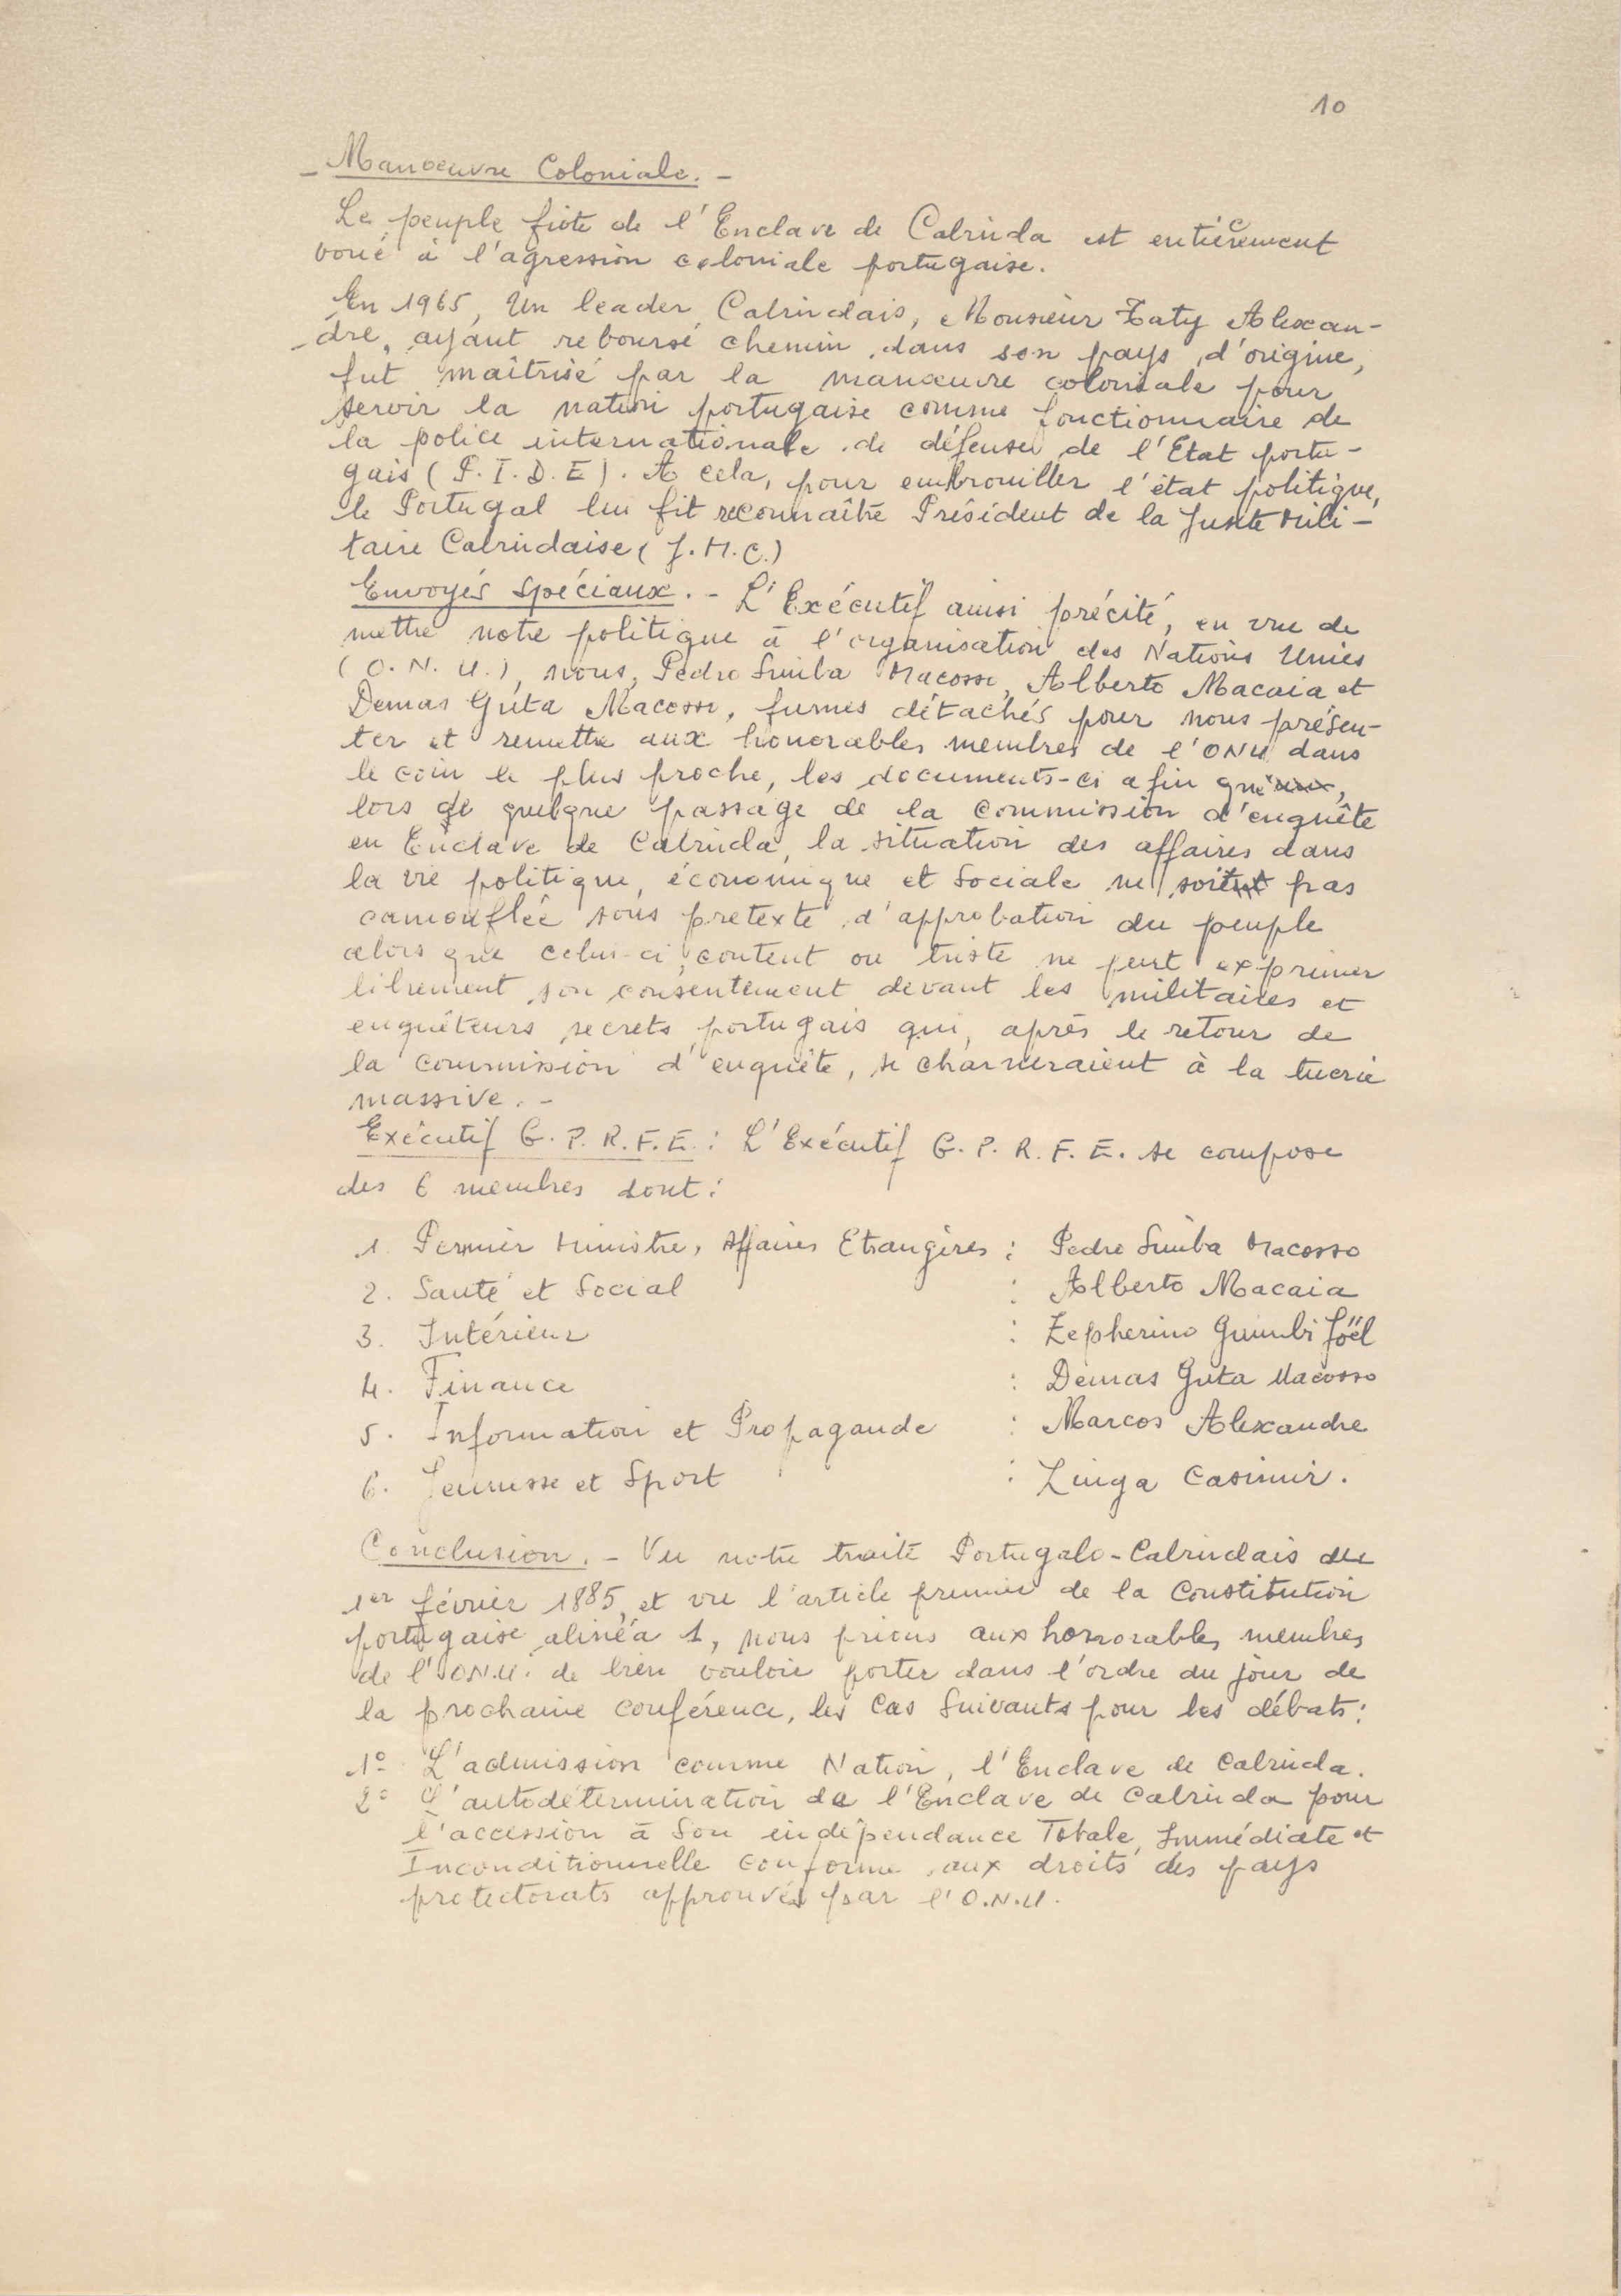 10
- Manoeuvre Coloniale. -
Le peuple fiote de l'Enclave de Cabinda est entièrement
voué à l'agression coloniale portugaise.
En 1965, Un leader Cabindais, Monsieur Taty Alexan-
-dre, ayant reboursé chemin dans son pays d'origine,
fut maîtrisé par la manœuvre coloniale pour
servir la nation portugaise comme fonctionnaire de
la police internationale de défense de l'Etat portu-
gais (P.I.D.E). A cela, pour embrouiller l'état politique,
le Portugal lui fit reconnaître Président de la Junte Mili-
taire Cabindaise (J.M.C.)
Envoyés Spéciaux. - L'Exécutif ainsi précité, en vue de
mettre notre politique à l'organisation des Nations Unies
(O.N.U.), nous, Pedro Simba Macosso, Alberto Macaia et
Demas Guta Macosso, fumes détachés pour nous présen-
ter et remettre aux honorables membres de l'ONU dans
le coin le plus proche, les documents-ci afin que,
lors de quelque passage de la commission d'enquête
en Enclave de Cabinda, la situation des affaires dans
la vie politique, économique et Sociale ne soit pas
camouflée sous pretexte d'approbation du peuple
alors que celui-ci, content ou triste ne peut exprimer
librement son consentement devant les militaires et
enquêteurs secrets portugais qui, après le retour de
la commission d'enquête, se charneraient à la tuerie
massive. -
Exécutif G.P.R.F.E.: L'Exécutif G.P.R.F.E. se compose
des 6 membres dont:
1. Permier Ministre, Affaires Etrangères : Pedro Simba Macosso
2. Santé et Social : Alberto Macaia
3. Intérieur : Zepherino Guimbi Joël
4. Finance : Demas Guta Macosso
5. Information et Propagande : Marcos Alexandre
6. Jeunesse et Sport : Zinga Casimir.
Conclusion. - Vu notre traité Portugalo-Cabindais du
1er février 1885, et vu l'article premier de la Constitution
portugaise alinéa 1, nous prions aux honorables membres
de l'ONU. de bien vouloir porter dans l'ordre du jour de
la prochaine conférence, les Cas Suivants pour les débats:
1º L'admission comme Nation, l'Enclave de Cabinda.
2º L'autodétermination de l'Enclave de Cabinda pour
l'accession à Son indépendance Totale, Immédiate et
Inconditionnelle conforme aux droits des pays
protectorats approuvés par l'O.N.U.